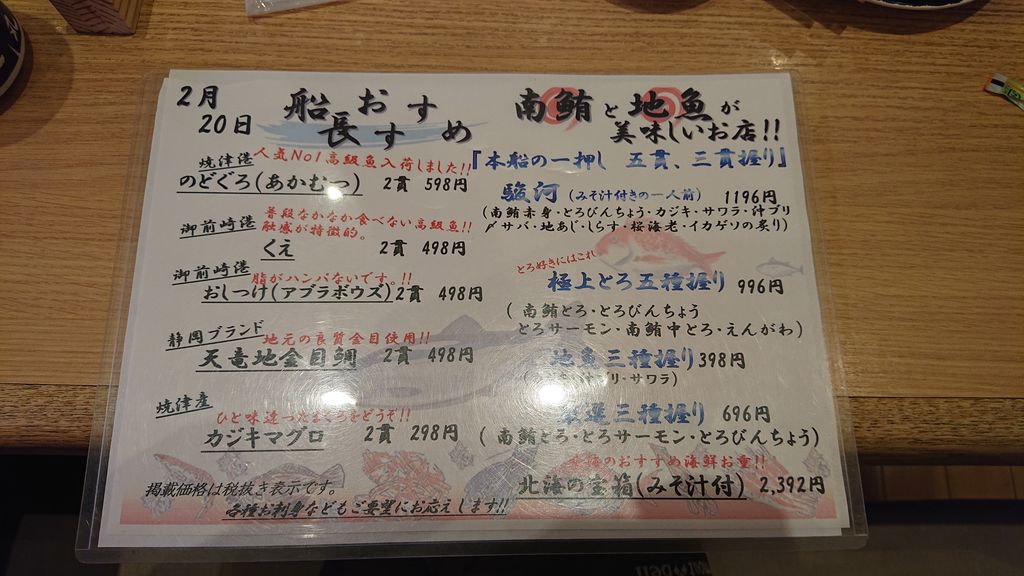 2月
20日
船長おすすめ
焼津港
人気No1高級魚入荷しました!!
のどぐろ(あかむつ) 2貫 598円
御前崎港
普段なかなか食べない高級魚!!
触感が特徴的。
くえ 2貫 498円
御前崎港
脂がハンパないです。!!
おしつけ(アブラボウズ) 2貫 498円
静岡ブランド
地元の良質金目使用!!
天竜地金目鯛 2貫 498円
焼津産
ひと味違ったまぐろをどうぞ!!
カジキマグロ 2貫 298円
掲載価格は税抜き表示です。
各種お刺身などもご要望にお応えします!!
南鮪と地魚が
美味しいお店!!
『本船の一押し 五貫、三貫握り』
駿河(みそ汁付きの一人前) 1196円
(南鮪赤身・とろびんちょう・カジキ・サワラ・汁ブリ
〆サバ・地あじ・しらす・桜海老・イカゲソの炙り)
とろ好きにはこれ
極上とろ五種握り 996円
(南鮪とろ・とろびんちょう
とろサーモン・南鮪中とろ・えんがわ)
地魚三種握り 398円
リ・サワラ)
選三種握り 696円
(南鮪とろ・とろサーモン・とろびんちょう)
海のおすすめ海鮮お重!!
北海の宝箱(みそ汁付) 2,392円